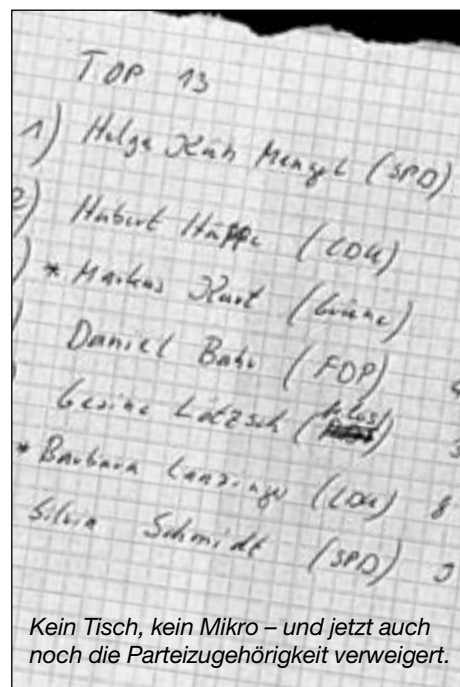 TOP 13
1) Helga Kühn Mengel (SPD)
2) Hubert Hüppe (CDU)
) * Markus Kurt (Grüne)
) Daniel Bahr (FDP) 4
) Gesine Lötzsch
* Barbara Lanzinger (CDU) 8
Silvia Schmidt (SPD)
Kein Tisch, kein Mikro – und jetzt auch
noch die Parteizugehörigkeit verweigert.